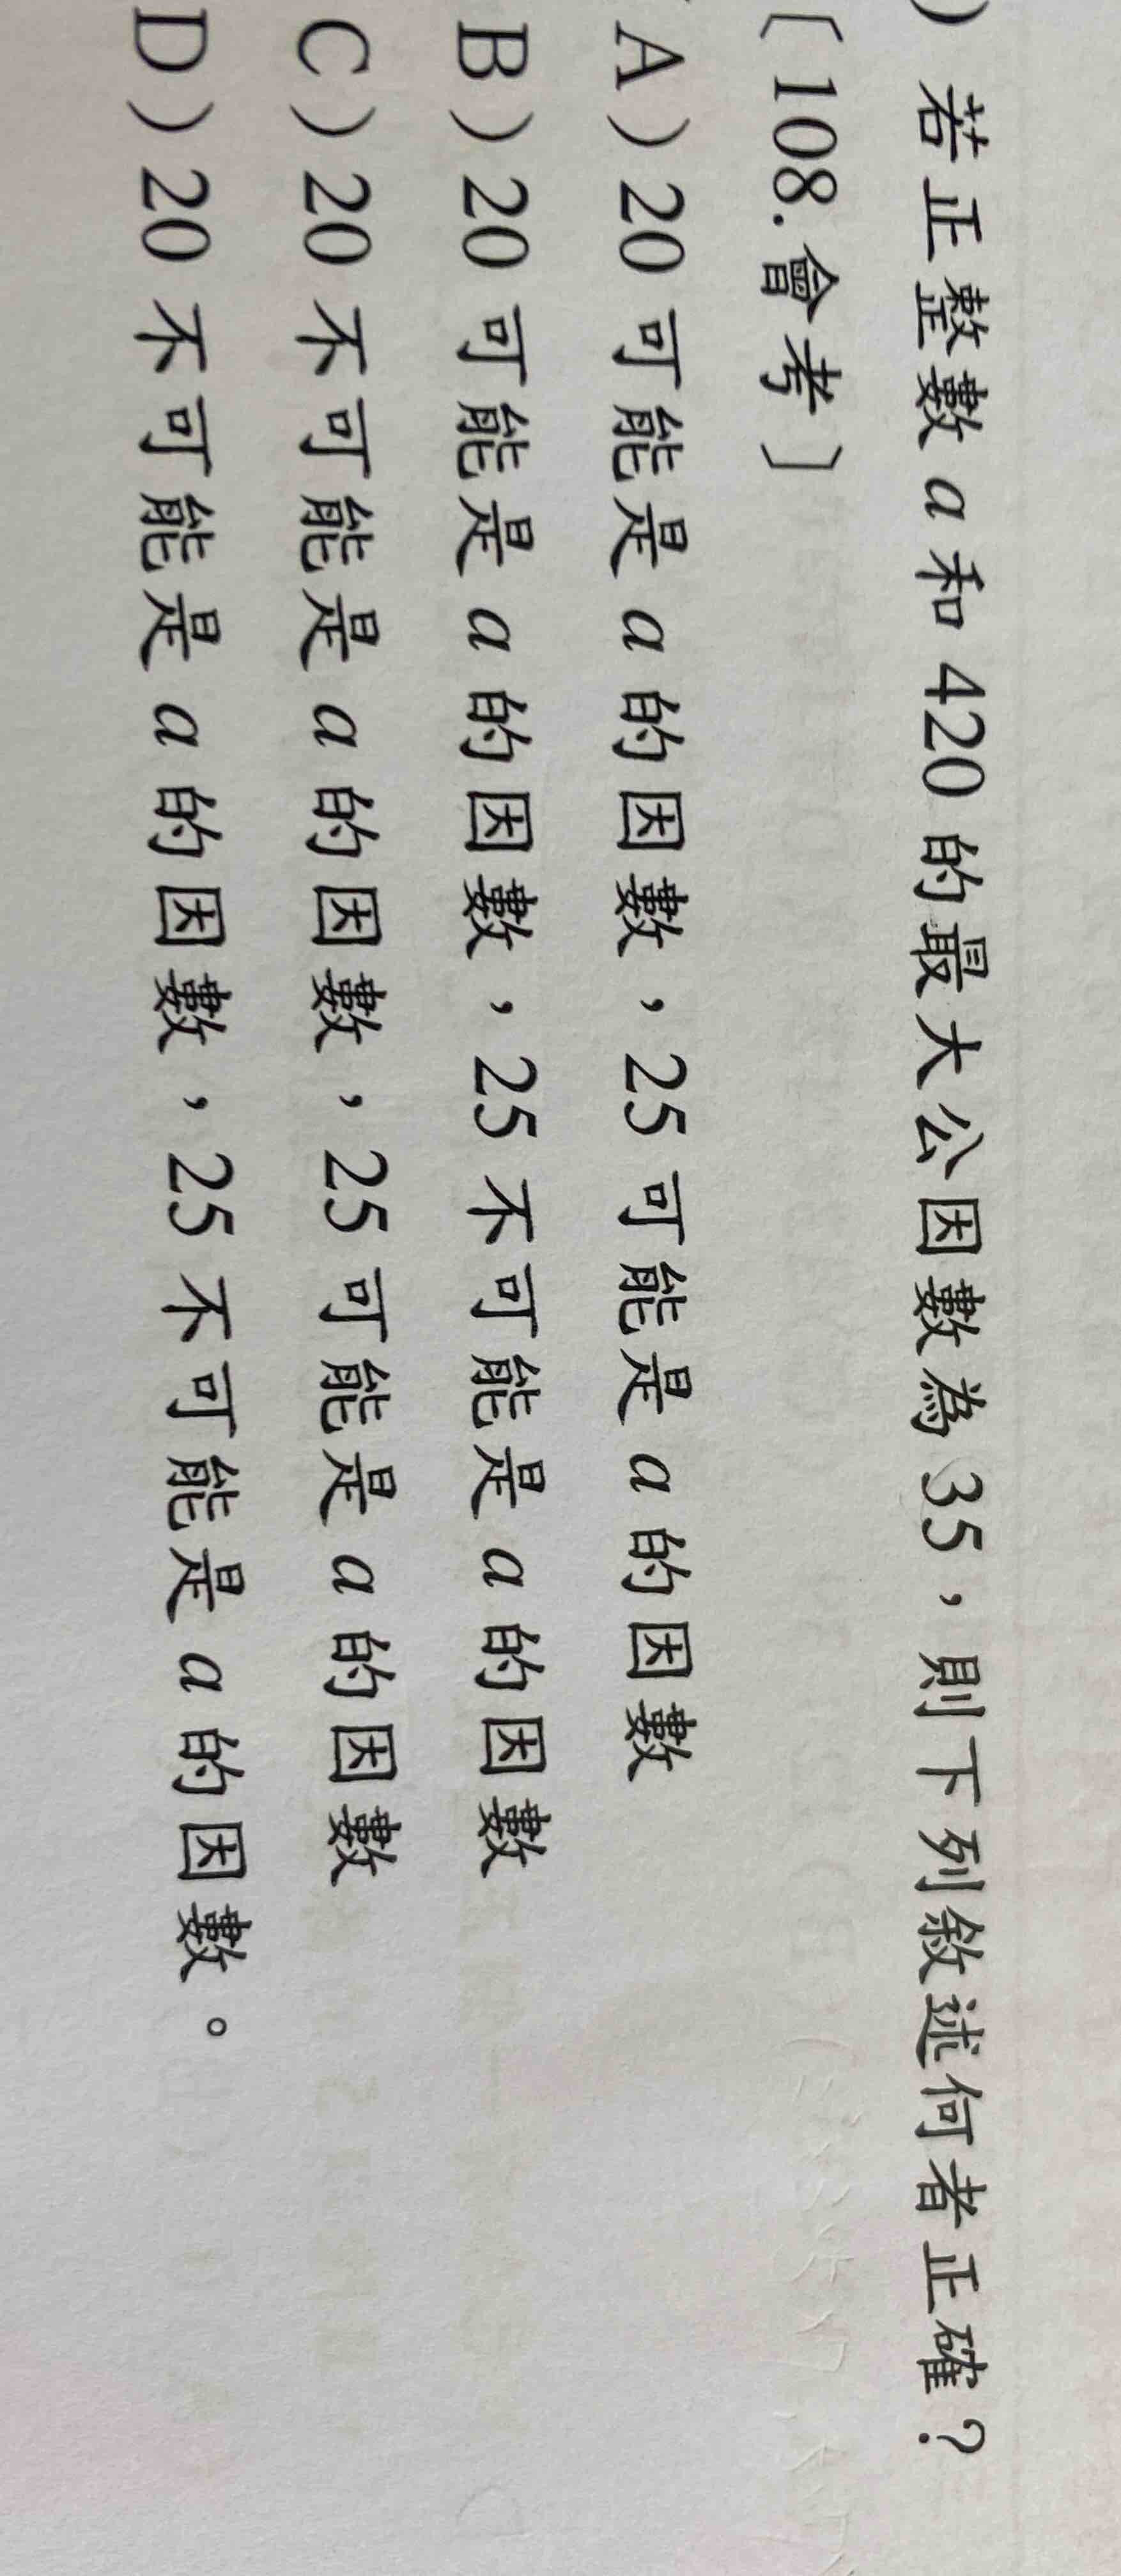 ) 若正整數 a 和 420 的最大公因數為 35，則下列敘述何者正確？
〔108.會考〕
A）20 可能是 a 的因數，25 可能是 a 的因數
B）20 可能是 a 的因數，25 不可能是 a 的因數
C）20 不可能是 a 的因數，25 可能是 a 的因數
D）20 不可能是 a 的因數，25 不可能是 a 的因數。